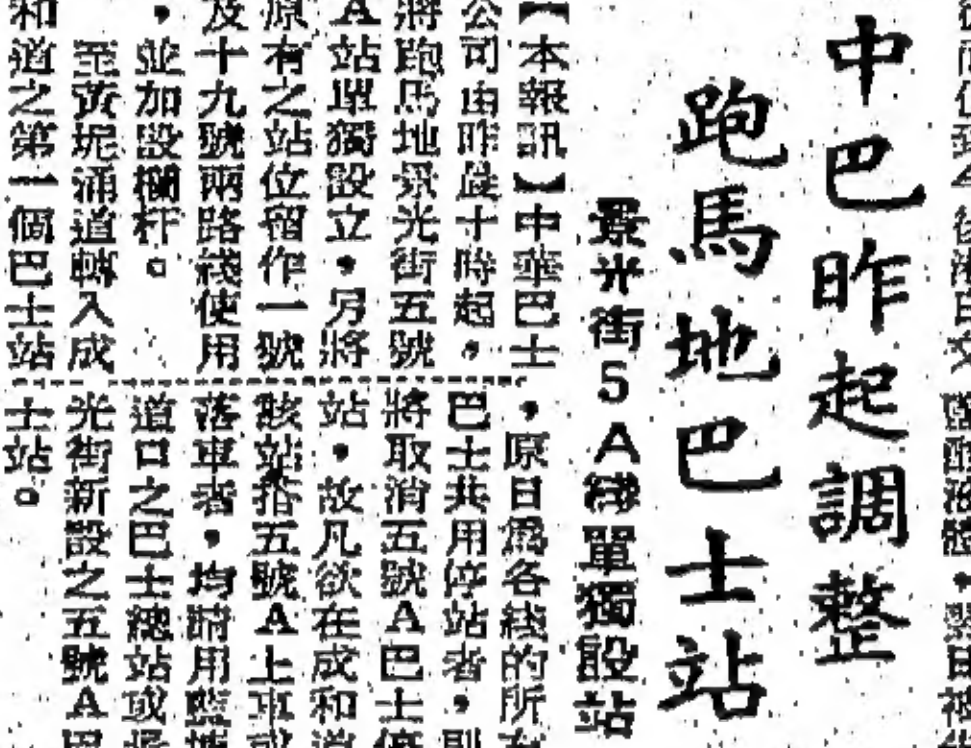 中巴昨起調整
跑馬地巴士站
景光街5A綫單獨設站
【本報訊】中華巴士
公司由昨晨十時起,
將跑馬地景光街五號
A站單獨設立,另將
原有之站位留作一號
及十九號兩路綫使用
,並加設欄杆。
至黃坭涌道轉入成
和道之第一個巴士站
,原日爲各綫的所有
巴士共用停站者,則
將取消五號A巴士停
站,故凡欲在成和道
該站搭五號A上車或
落車者,均請用藍塘
道口之巴士總站或景
光街新設之五號A巴
士站。